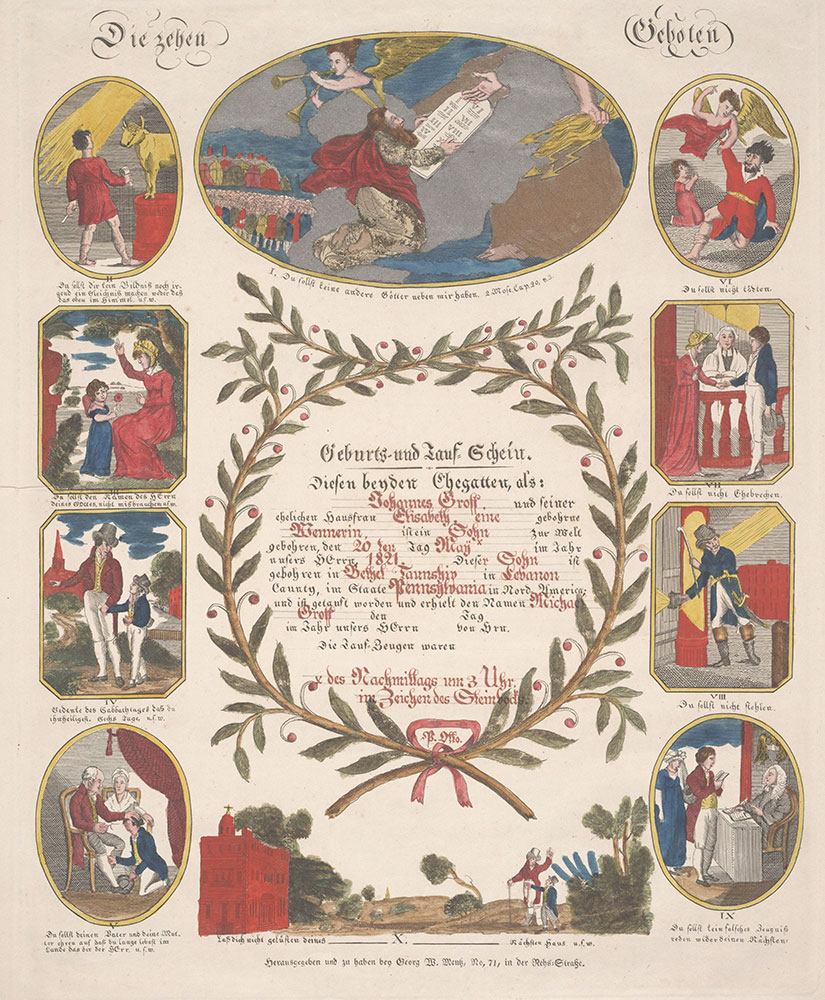 Die zehen Gebóten
I. Du sollst keine anders Götter neben mir haben. 2 Mose. Cap. 20. v. 3.
II
Du sollst dir kein Bildniß noch ir-
gend ein Gleichniß machen weder deß
das oben im Himmel. u.s.w.
III
Du sollst den Namen des HErrn
deines Gottes, nicht misbrauchen u.s.w.
IV
Gedenke des Sabbathtages daß du
ihn heiligest. Sechs Tage. u.s.w.
V
Du sollst deinen Vater und deine Mut-
ter ehren auf daß du lange lebest im
Lande das dir der HErr. u.s.w.
VI
Du sollst nicht tödten.
VII
Du sollst nicht Ehebrechen.
VIII
Du sollst nicht stehlen.
IX
Du sollst kein falsches Zeugniß
reden wider deinen Nächsten.
Geburts- und Tauf-Schein.
Diesen beyden Ehegatten, als:
Johannes Groff, und seiner
ehelichen Hausfrau Elisabeth eine gebohrne
Wennerin, ist ein Sohn zur Welt
gebohren, den 20 ten Tag May im Jahr
unsers HErrn, 1821. Dieser Sohn ist
gebohren in Bethel Taunship in Lebanon
Caunty, im Staate Pennsylvania in Nord America;
und ist getauft worden und erhielt den Namen Michael
Groff den Tag
im Jahr unsers HErrn von Hrn.
Die Tauf-Zeugen waren
x des Nachmittags um 3 Uhr.
im Zeichen des Steinbocks.
P. Otto.
Laß dich nicht gelüsten deines X. Nächsten Haus u.s.w.
Herausgegeben und zu haben bey Georg W. Mentz, No, 71, in der Rehs-Straße.